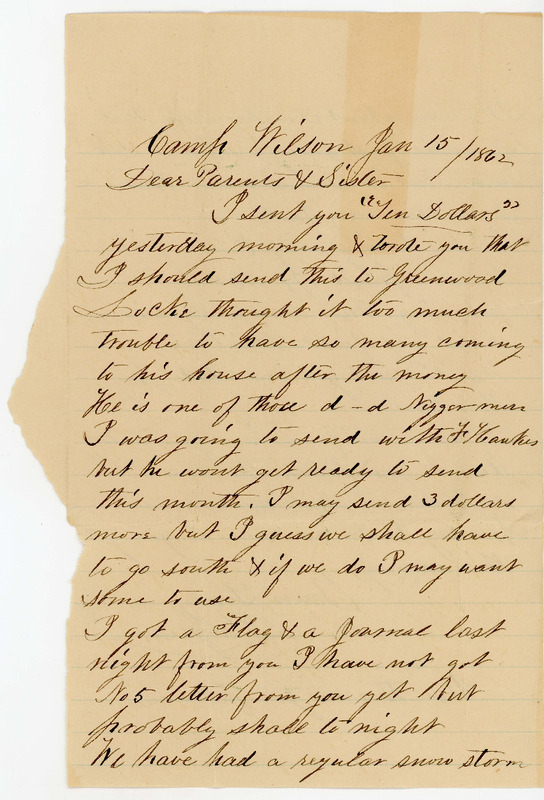 Camp Wilson Jan 15/1862
Dear Parents & Sister
I sent you "Ten Dollars"
yesterday morning & wrote you that
I should send this to Greenwood
Locke thought it too much
trouble to have so many coming
to his house after the money
He is one of those d-d Nigger men
I was going to send with F Hawkes
but he wont get ready to send
this month. I may send 3 dollars
more but I guess we shall have
to go south & if we do I may want
some to use
I got a Flag & a Journal last
night from you I have not got
No 5 letter from you yet but
probably shall to night
We have had a regular snow storm